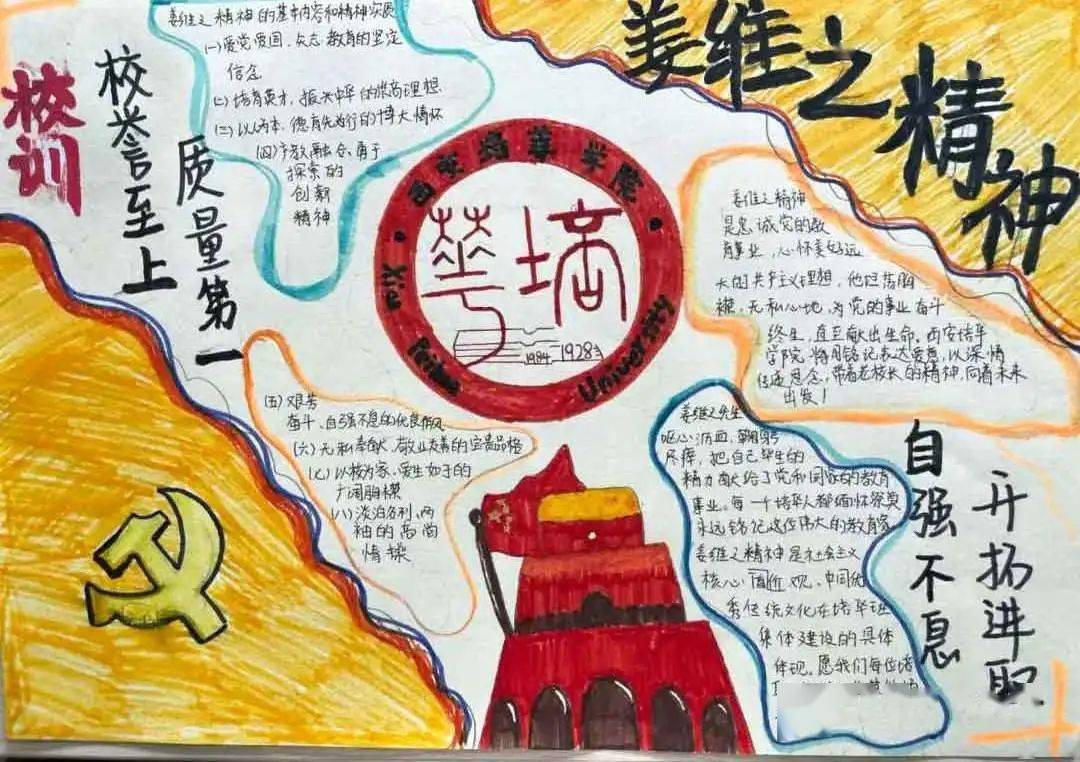 姜维之精神
校训
校誉至上
质量第一
姜维之精神的基本内容和精神实质
(一)爱党爱国、矢志教育的坚定
信念
(二)培育英才,振兴中华的崇高理想
(三)以人为本、德育先为行的博大情怀
(四)产教融合、勇于
探索的
创新
精神
西安培华学院
華培
1984 1928
Xi'an Peihua University
姜维之精神
是忠诚党的教
育事业,心怀美好远
大的共产主义理想,他坦荡胸
襟,无私心地,为党的事业奋斗
终生,直至献出生命。西安培华
学院,将用铭记表达爱意,以深情
传递思念,带着老校长的精神,向着未来
出发!
(五)艰苦
奋斗、自强不息的优良作风
(六)无私奉献、敬业友善的宝贵品格
(七)以校为家、爱生如子的
广阔胸襟
(八)淡泊名利、两
袖的高尚
情操
姜维之先生
呕心沥血,鞠躬
尽瘁,把自己毕生的
精力献给了党和国家的教育
事业。每一个培华人都缅怀
永远铭记这位伟大的教育家
姜维之精神是社会主义
核心价值观、中国优
秀传统文化在培华班
集体建设的具体
体现。愿我们每位培
自强不息
开拓进取